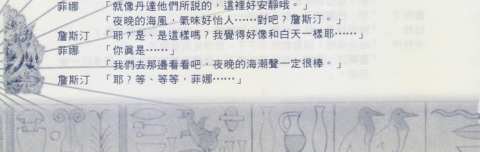 菲娜　「就像丹達他們所說的，這裡好安靜哦。」
「夜晚的海風，氣味好怡人……對吧？詹斯汀。」
詹斯汀　「耶？是、是這樣嗎？我覺得好像和白天一樣耶……」
菲娜　「你真是……」
「我們去那邊看看吧，夜晚的海潮聲一定很棒。」
詹斯汀　「耶？等、等等，菲娜……」